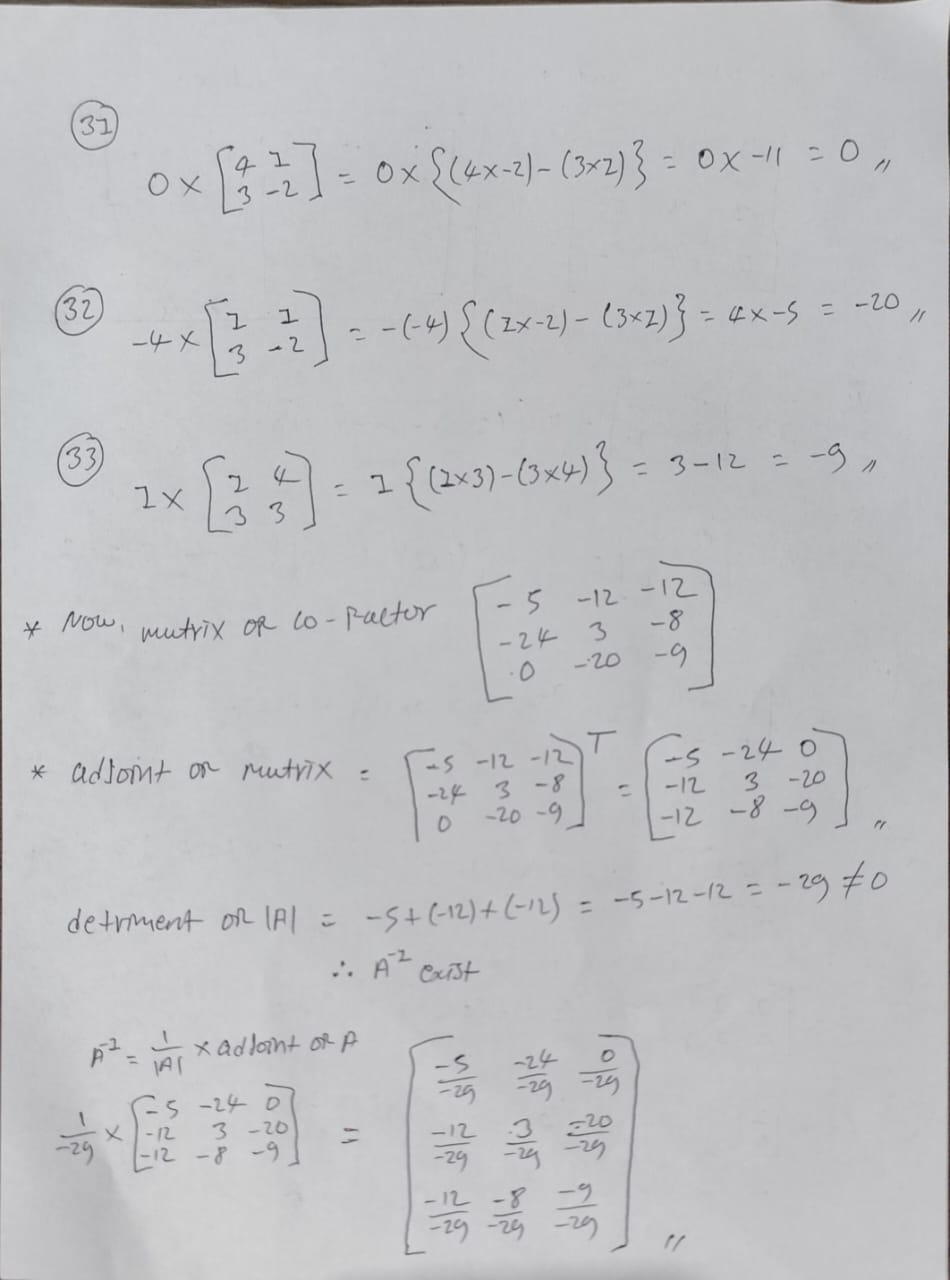 31
0 × [4 1
3 -2] = 0 × {(4×-2)-(3×1)} = 0×-11 = 0 〃
32
-4 × [1 1
3 -2] = -(-4) {(1×-2) - (3×1)} = 4×-5 = -20 〃
33
1 × [1 4
3 3] = 1 {(1×3)-(3×4)} = 3-12 = -9 〃
* Now, mutrix of co-factor [-5 -12 -12
-24 3 -8
0 -20 -9]
* adjoint of mutrix = [-5 -12 -12
-24 3 -8
0 -20 -9]ᵀ = [-5 -24 0
-12 3 -20
-12 -8 -9] 〃
detriment of |A| = -5+(-12)+(-12) = -5-12-12 = -29 ≠ 0
∴ A⁻¹ exist
A⁻¹ = 1/|A| × adjoint of A
1/-29 × [-5 -24 0
-12 3 -20
-12 -8 -9] = [-5/-29 -24/-29 0/-29
-12/-29 3/-29 -20/-29
-12/-29 -8/-29 -9/-29] 〃